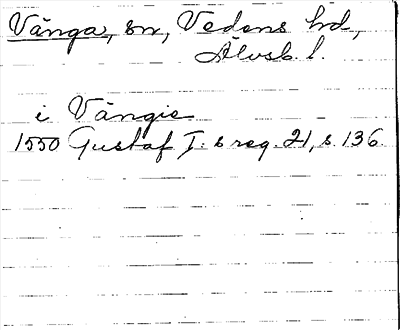 Vånga, sn, Vedens hd,
Älvsb. l.
i Vångie
1550 Gustaf I:s reg. 21, s. 136.